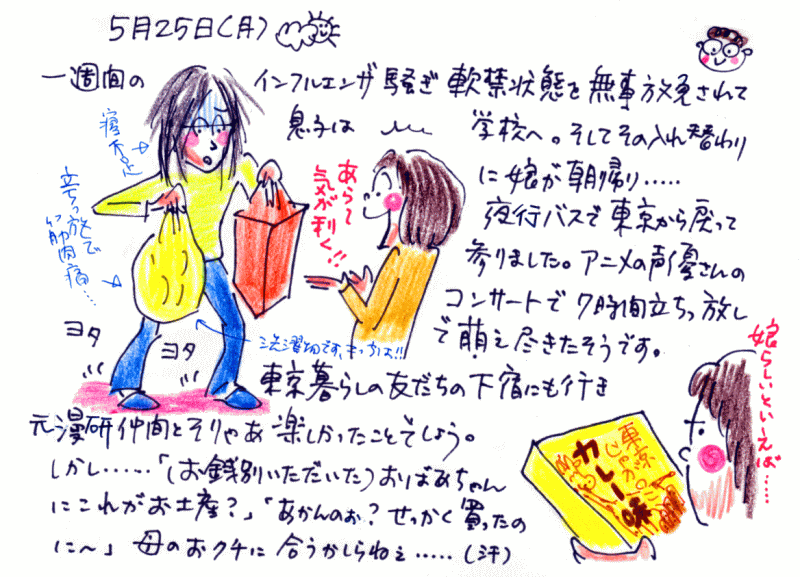 5月25日(月)
一週間の インフルエンザ騒ぎ 軟禁状態を無事放免されて
息子は 学校へ。そしてその入れ替わり
に娘が朝帰り.....
夜行バスで東京から戻って
参りました。アニメの声優さんの
コンサートで 7時間立ちっ放し
で萌え尽きたそうです。
東京暮らしの友だちの下宿にも行き
元漫研仲間とそりゃあ楽しかったことでしょう。
しかし……「(お銭別いただいた)おばあちゃん
にこれがお土産?」「あかんのぉ?せっかく買ったの
に〜」母のおクチに合うかしらねぇ.....(汗)
寝不足
立ちっ放しで
筋肉痛...
あらっ
気が利く!!
ヨタ
ヨタ
洗濯物です、そっちは!!
娘らしいといえば.....
東京
じゃがボー
カレー味